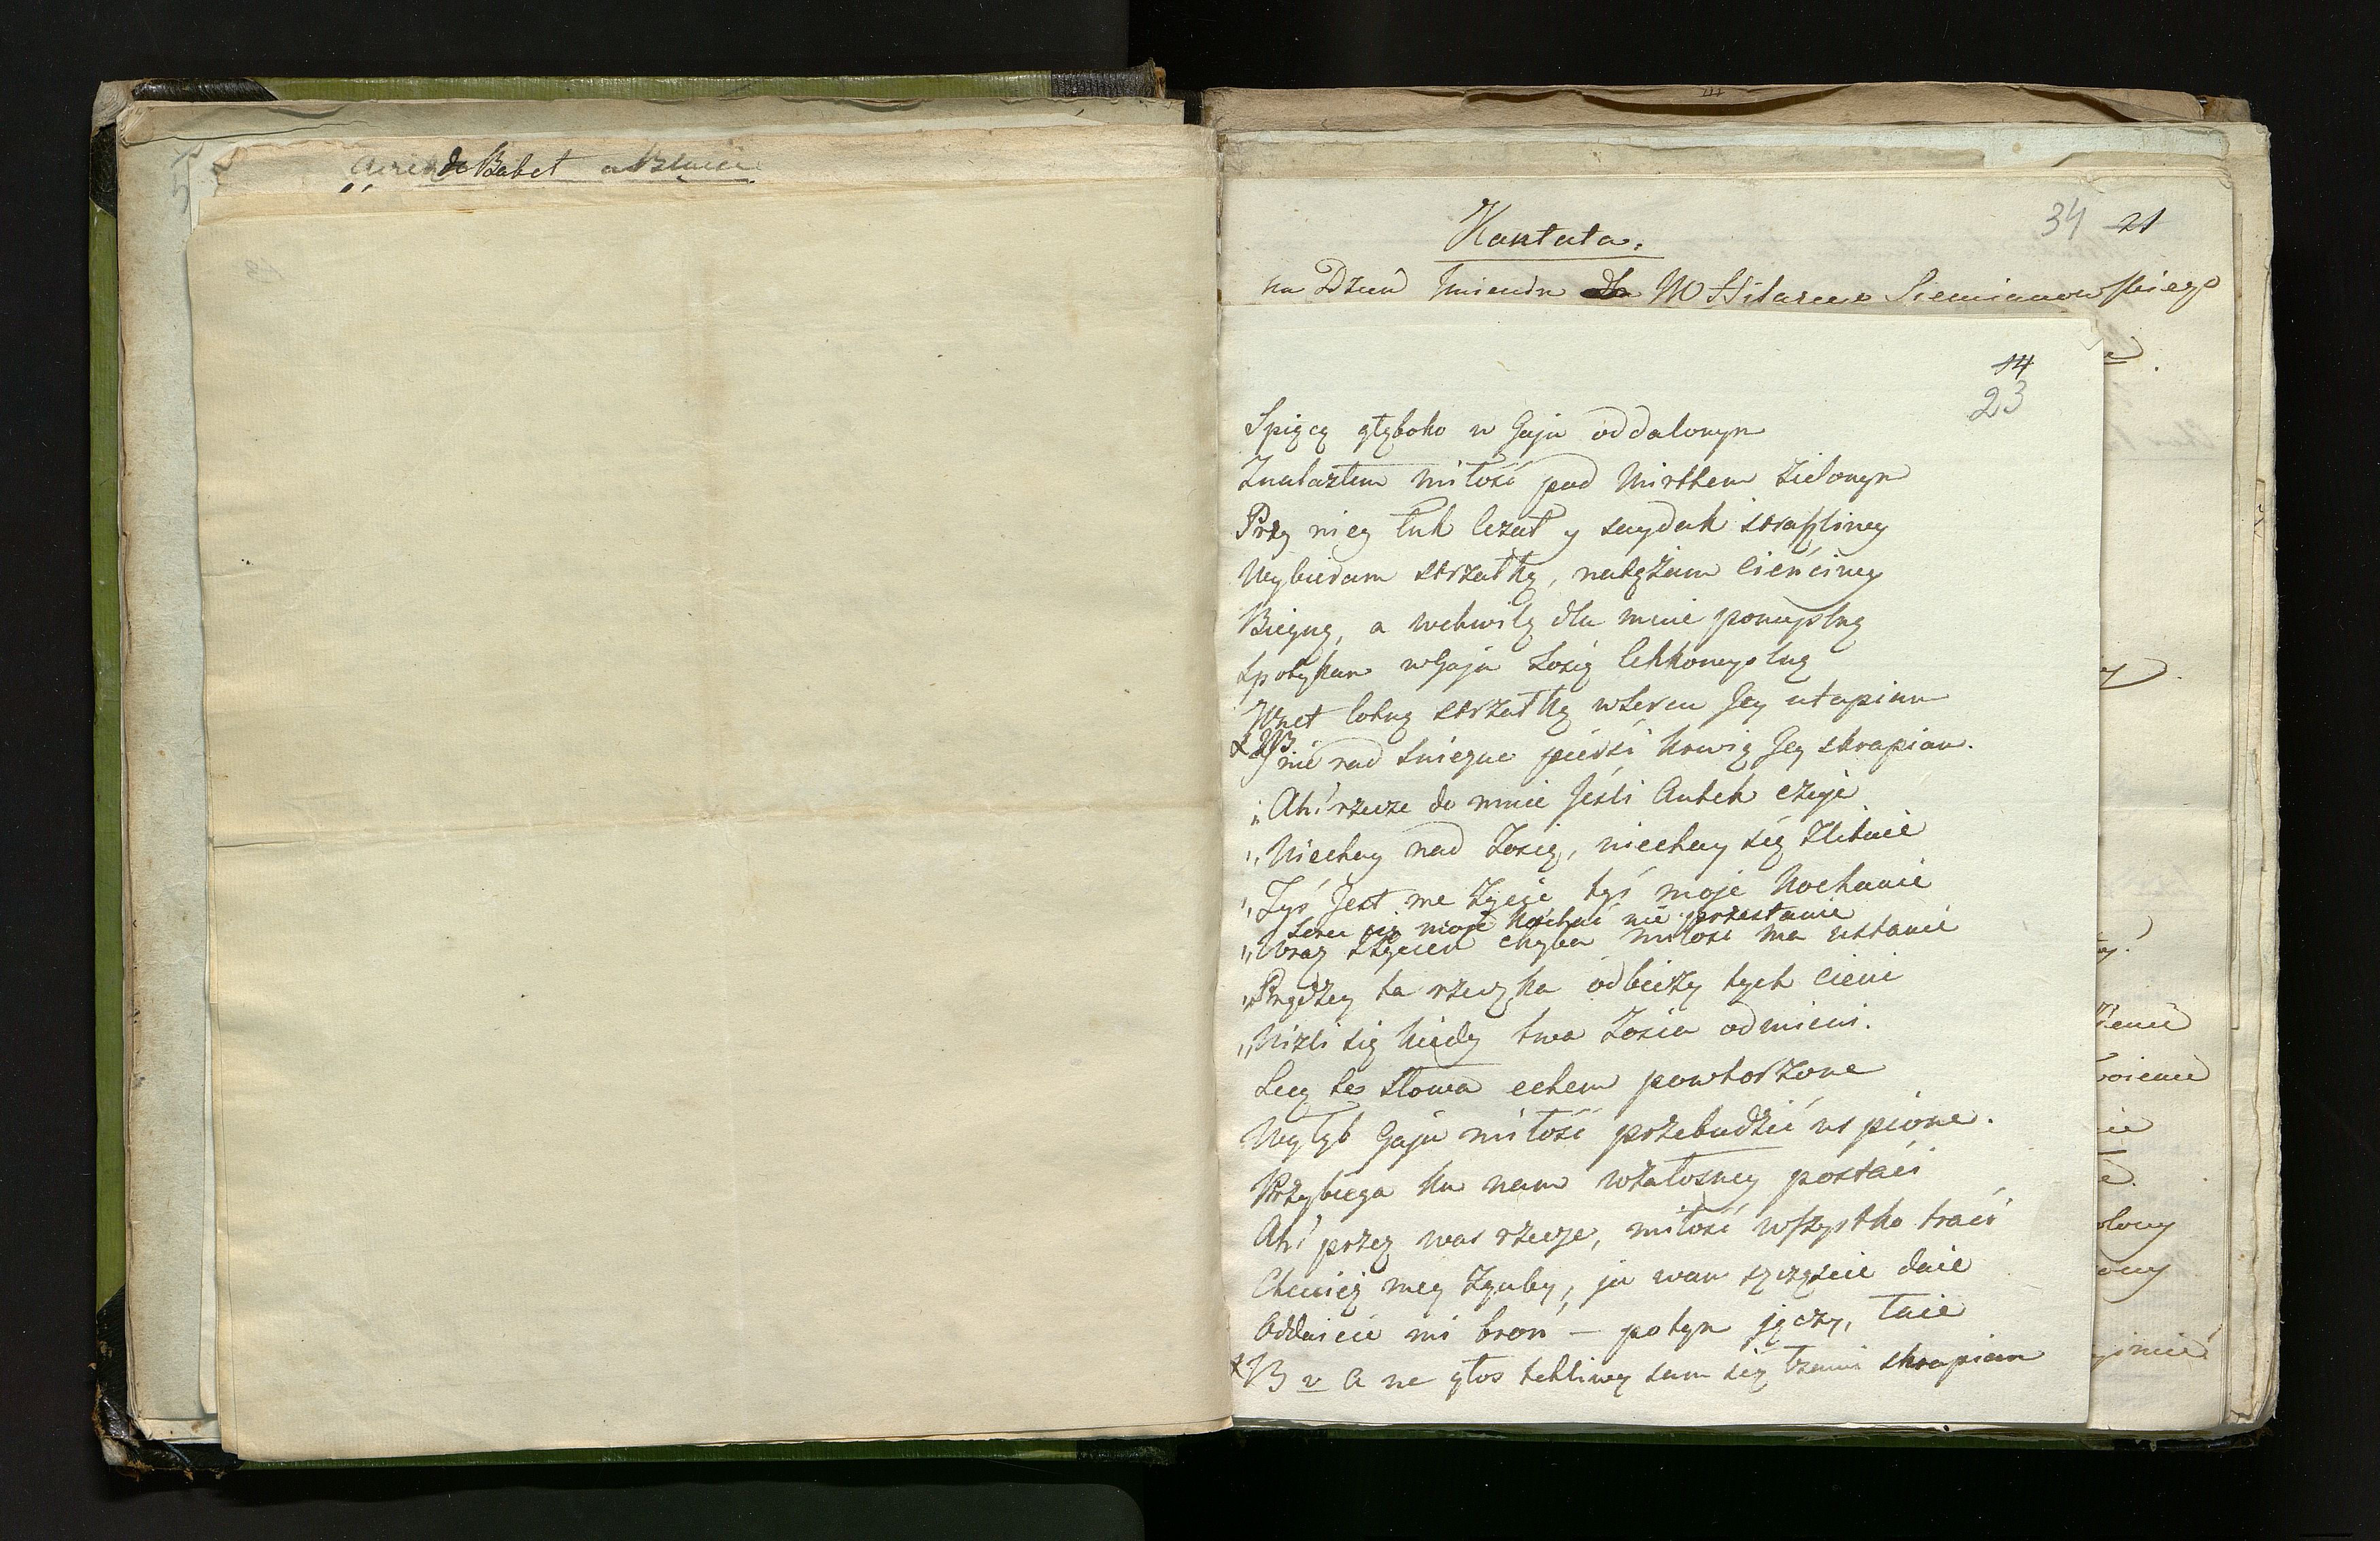 de Babet
34 21
Kantata.
na Dzień Imienin W Hilarego Siemianowskiego
14
23
Spiący głęboko w Gaju oddalonym
Znalazłem miłość pod Mirthem zielonym
Przy niey łuk leżał y saydak straszliwy
Wybieram strzałkę, natężam cienciwy
Biegnę, a wchwilę dla mnie pomyslną
Spotykam w Gaju Zosię lekkomyslną
Wnet lotną strzałkę w Sercu Jey utapiam
X NB. I nie rad snieżne piersi krwią Jey skrapiam.
„Ah! rzecze do mnie Jeśli Antek czuje
„Niechay nad Zosią, niechay się zlituie
„Tyś Jest me życie tyś moje kochanie
Serce cię moje kochać nie przestanie
„Wraz z życiem chyba miłość ma ustanie
„Prędzey ta rzeczka odbieży tych cieni
„Nizli się kiedy twa Zosia odmieni.
Lecz te słowa echem powtorzone
W głąb Gaju miłość przebudzić uspione.
Przybiega ku nam w żałosney postaci
Ah! przez was rzecze, miłość wszystko traci
Chcecież mey zguby, ja wam szczęście daie
Oddaicie mi broń – potym jęczy, łaie
X B v A na głos tkliwy sam się łzami skrapiam